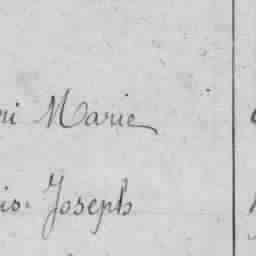 ni Marie
io. Joseph